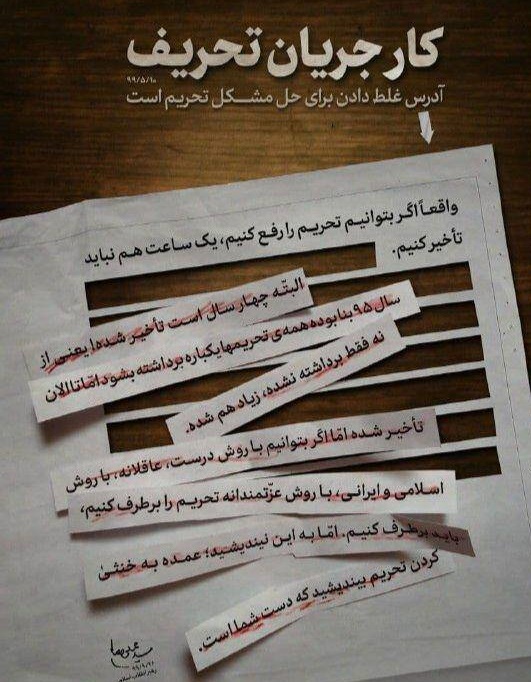 کار جریان تحریف
۹۹/۵/۱۰
آدرس غلط دادن برای حل مشکل تحریم است
واقعاً اگر بتوانیم تحریم را رفع کنیم، یک ساعت هم نباید
تأخیر کنیم.
البتّه چهار سال است تأخیر شده؛ یعنی از
سال ۹۵ بنا بوده همه‌ی تحریمها یکباره برداشته بشود امّا تا الان
نه فقط برداشته نشده، زیاد هم شده.
تأخیر شده امّا اگر بتوانیم با روش درست، عاقلانه، با روش
اسلامی و ایرانی، با روش عزّتمندانه تحریم را برطرف کنیم،
باید برطرف کنیم. امّا به این نیندیشید؛ عمده به خنثیٰ
کردن تحریم بیندیشید که دست شما است.